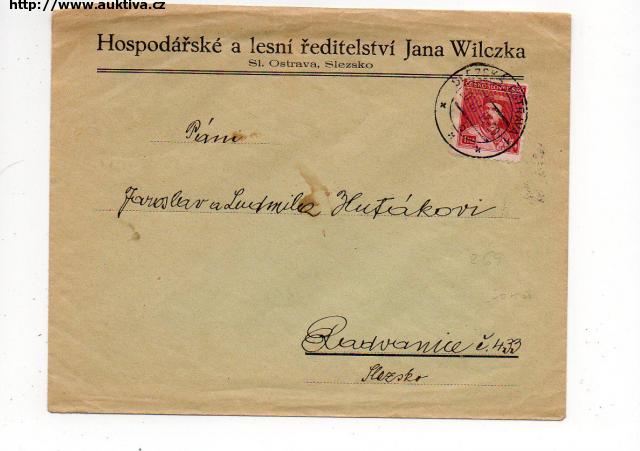 http://www.auktiva.cz
Hospodářské a lesní ředitelství Jana Wilczka
Sl. Ostrava, Slezsko
Pánm
Jaroslav a Ludmila Huťákovi
Radvanice č. 433
Slezsko